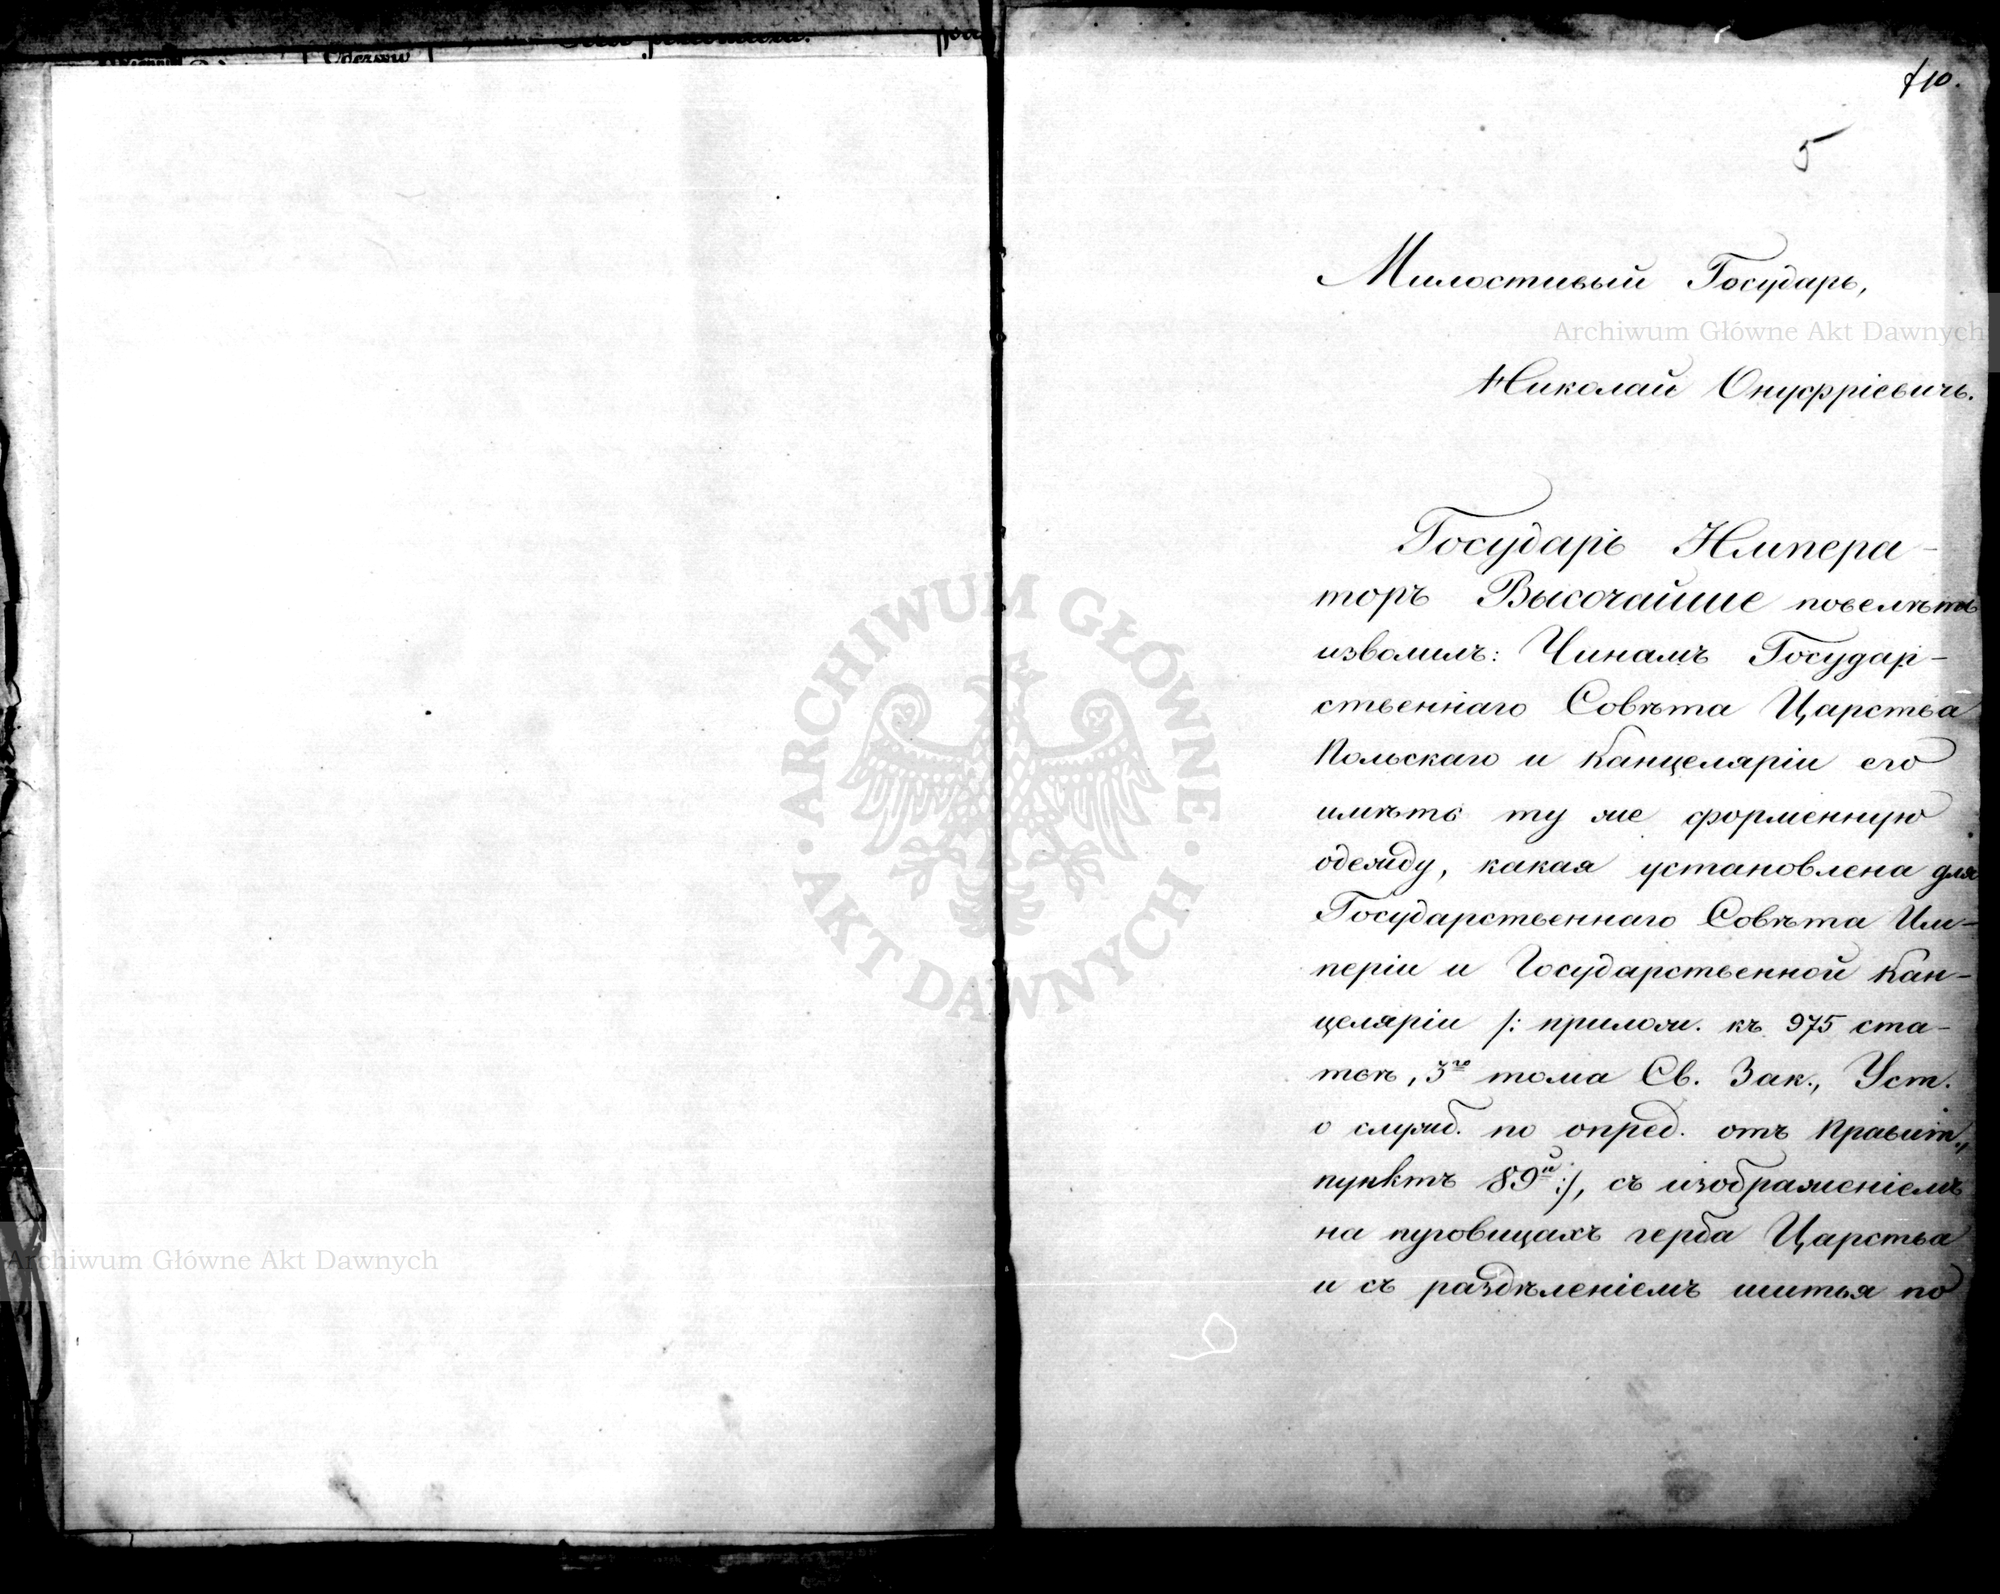 10.
5
Милостивый Государь,
Николай Онуфріевичъ.
Государь Импера-
торъ Высочайше повелѣть
изволилъ: Чинамъ Государ-
ственнаго Совѣта Царства
Польскаго и Канцеляріи его
имѣть ту же форменную
одежду, какая установлена для
Государственнаго Совѣта Им-
періи и Государственной Кан-
целяріи /: прилож. къ 975 ста-
тьѣ, 3го тома Св. Зак., Уст.
о служб. по опред. отъ Правит.,
пунктъ 89й :/, съ изображеніемъ
на пуговицахъ герба Царства
и съ раздѣленіемъ шитья по
Archiwum Główne Akt Dawnych
Archiwum Główne Akt Dawnych
ARCHIWUM GŁÓWNE · AKT DAWNYCH ·